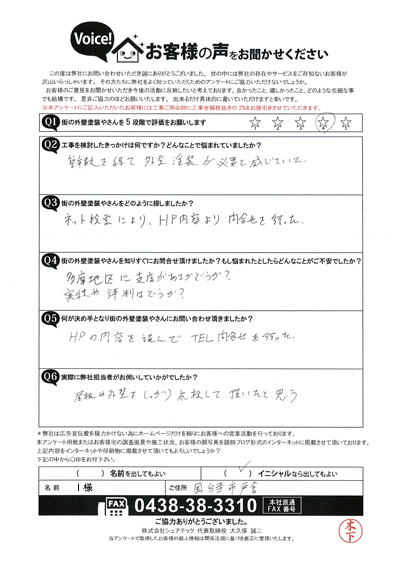 Voice!
お客様の声をお聞かせください
この度は弊社にお問い合わせいただき誠にありがとうございました。世の中には弊社の存在やサービスをご存知ないお客様が
沢山いらっしゃいます。その方たちに弊社をよく知っていただくためのアンケートにご協力いただけないでしょうか。
お客様のご意見をお聞かせいただき今後の活動に反映したいと考えております。良かったこと、嬉しかったこと、どのような些細な事
でも結構です。是非ご協力のほどお願いいたします。出来るだけ具体的に書いていただけますと幸いです。
※本アンケートにご記入いただいたお客様には工事ご用命時に工事金額税抜きの2%を値引きさせていただきます。
Q1 街の外壁塗装やさんを5段階で評価をお願いします ☆ ☆ ☆ ☆ ☆
Q2 工事を検討したきっかけは何ですか?どんなことで悩まれていましたか?
を経て 外壁塗装が必要と感じていた。
Q3 街の外壁塗装やさんをどのように探しましたか?
ネット検索により、HP内容より 問合せを行った。
Q4 街の外壁塗装やさんを知りすぐにお問合せ頂けましたか?もし悩まれたとしたらどんなことがご不安でしたか?
多摩地区に支店があるかどうか?
実績や評判はどうか?
Q5 何が決め手となり街の外壁塗装やさんにお問い合わせ頂きましたか?
HPの内容を読んで TEL問合せを行った。
Q6 実際に弊社担当者がお伺いしていかがでしたか?
屋根や外壁をしっかり点検して頂いたと思う
*弊社は広告宣伝費を極力かけない為にホームページだけを頼りにお客様への営業活動を行っております。
本アンケート用紙またはお客様宅の調査風景や施工状況、お客様の顔写真を随時ブログ形式のインターネットに掲載させて頂いております。
上記内容をインターネットや印刷物に掲載させて頂いてもよろしいでしょうか?
下記の中から○印をお付下さい。
( )名前を出してもよい ( ✓ )イニシャルなら出してもよい
名前 I 様 ご住所 国分寺市戸倉
FAX 0438-38-3310 本社直通 FAX番号
ご協力ありがとうございました。
株式会社シェアテック 代表取締役 大久保 誠二
当アンケートで取得したお客様の個人情報は関係法規に基づき厳正に管理いたします。
木下